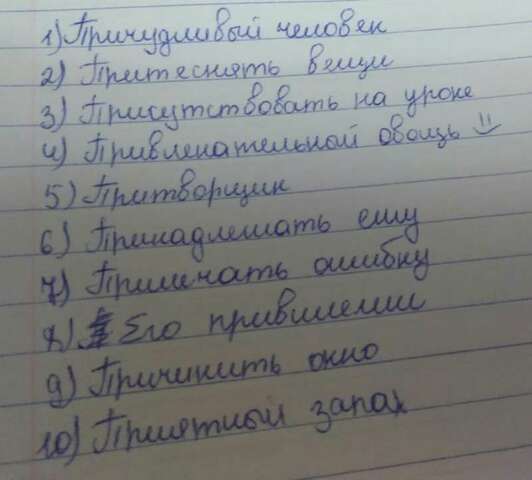 1) Причудливый человек
2) Притеснять вещи
3) Присутствовать на уроке
4) Привлекательной овощь
5) Притворщик
6) Принадлежать ему
7) Примечать ошибку
8) Его привилегии
9) Причинить окно
10) Приятный запах